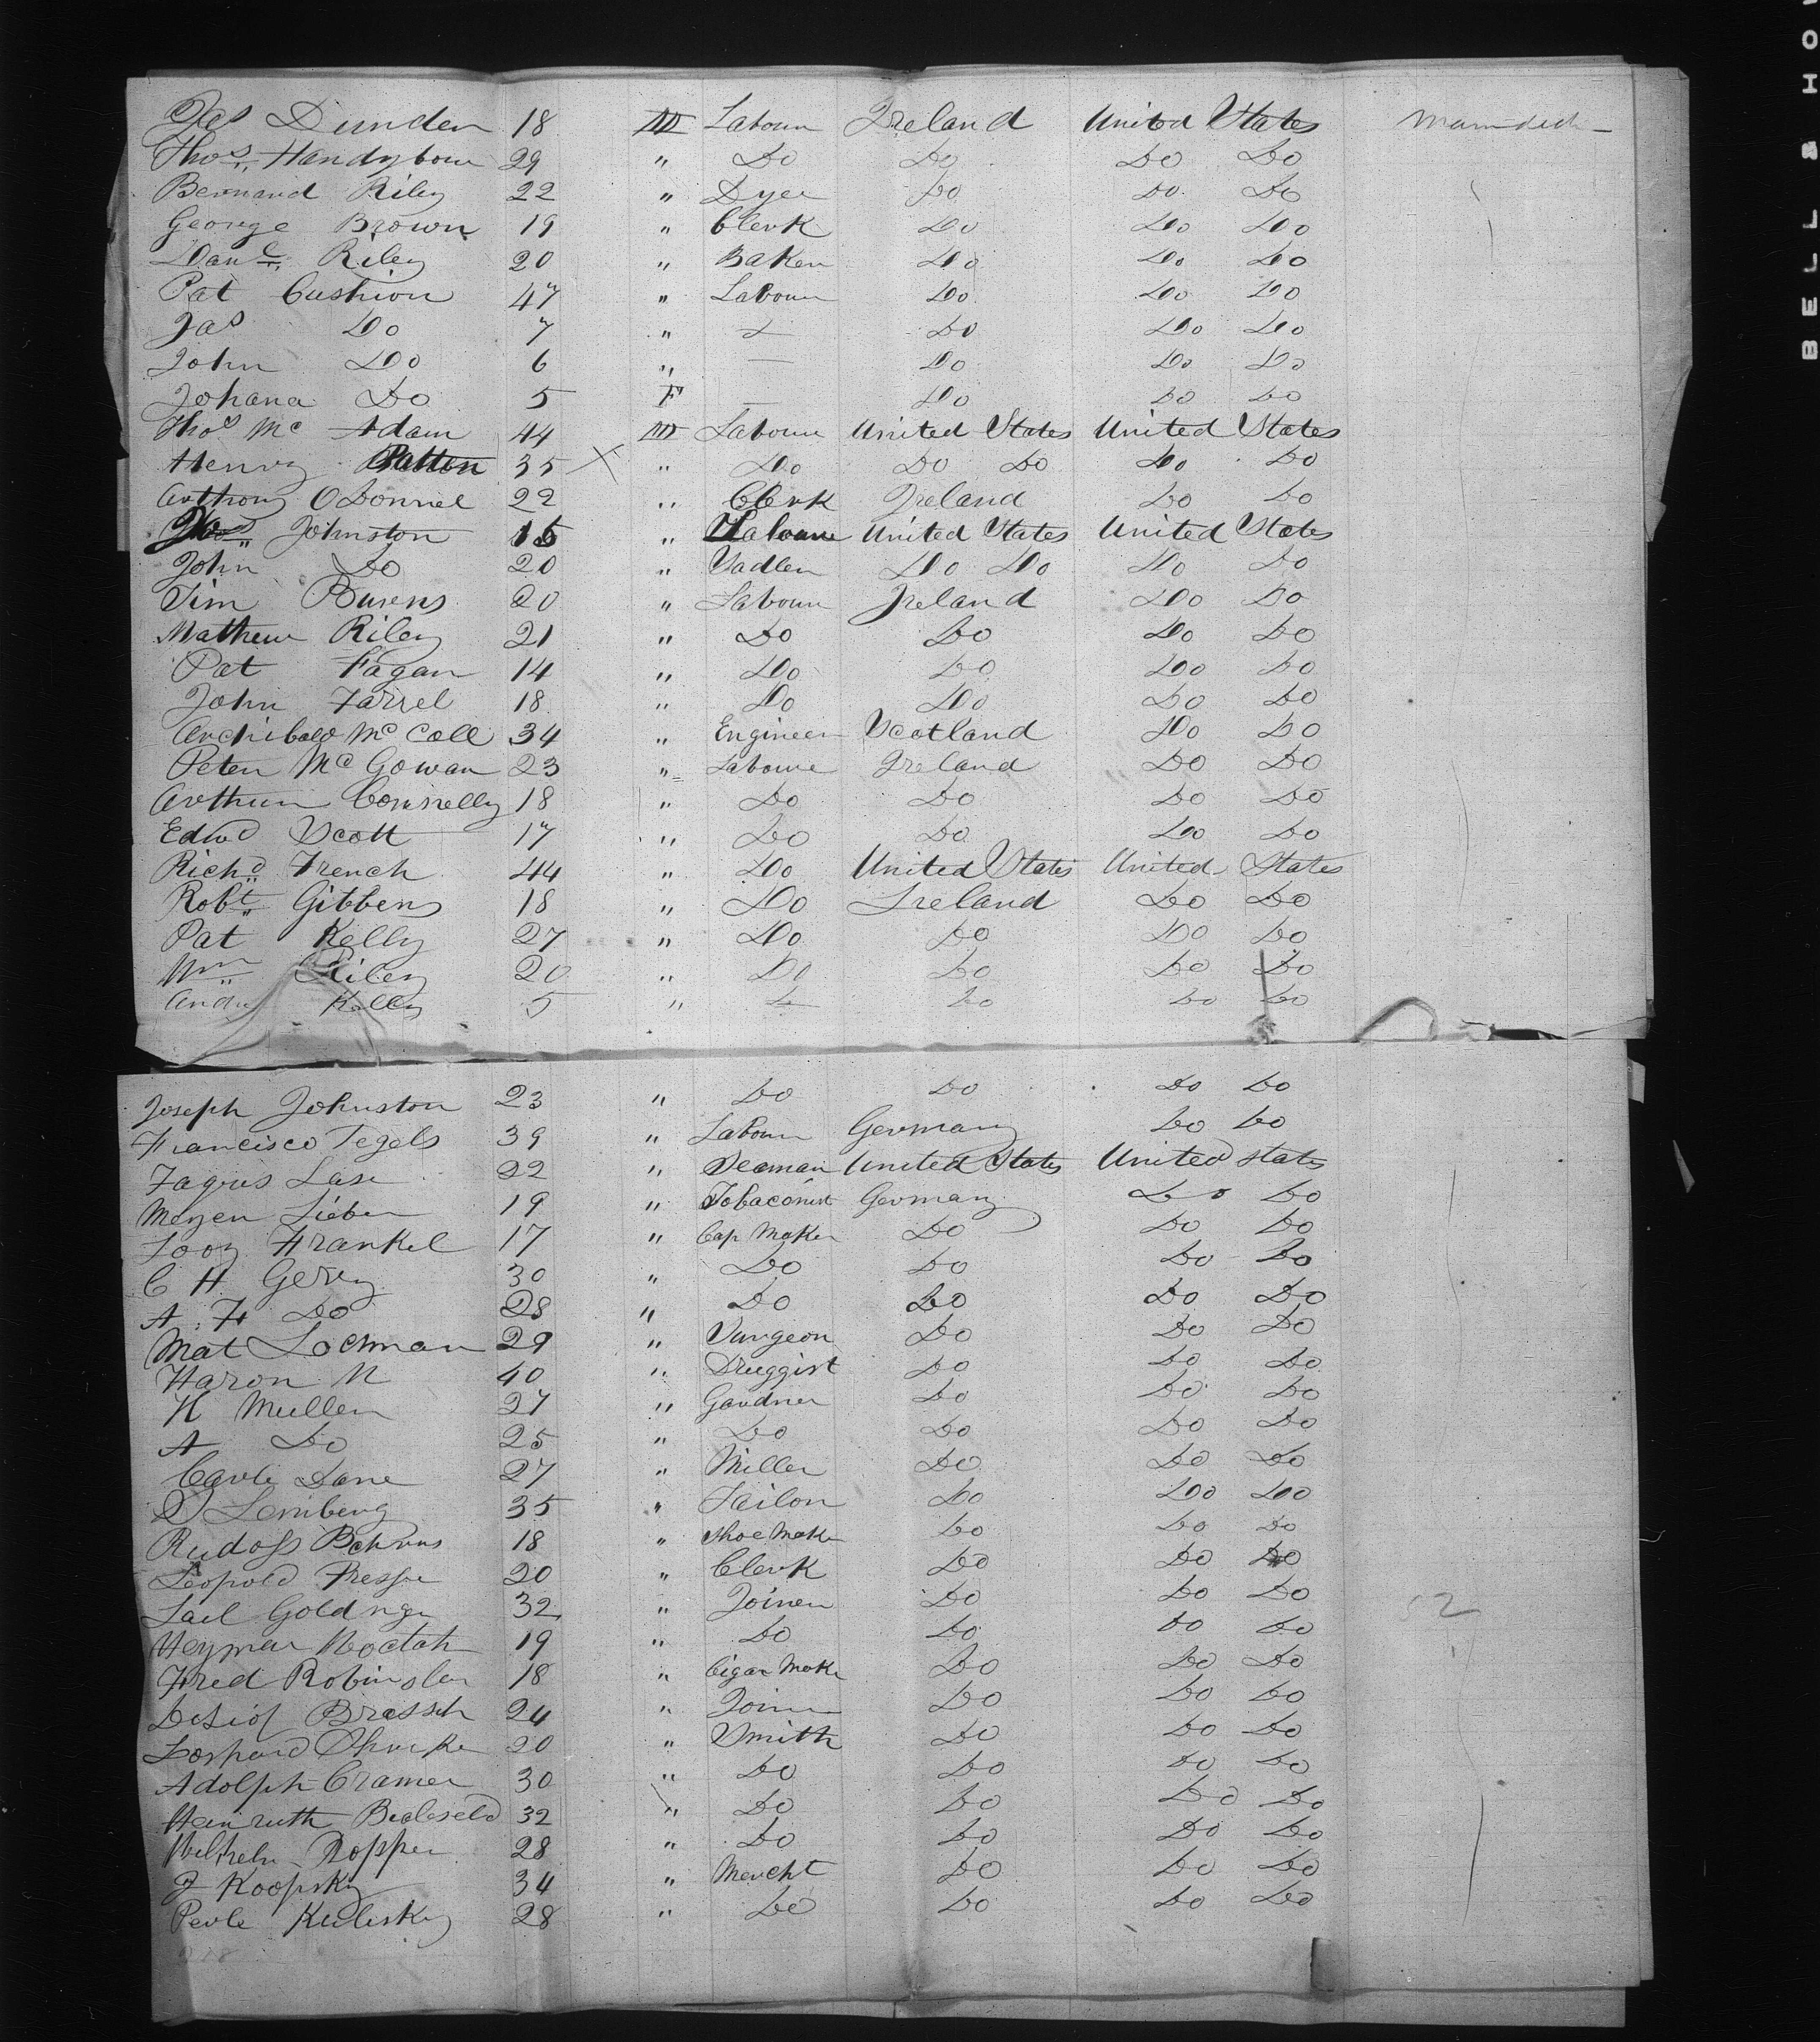 Jas Dunden 18 M Labour Ireland United States Main deck
Thos Handybour 29 " Do Do Do Do
Bernard Riley 22 " Dyer Do Do Do
George Brown 19 " Clerk Do Do Do
Danl Riley 20 " Baker Do Do Do
Pat Cushion 47 " Labour Do Do Do
Jas Do 7 " — Do Do Do
John Do 6 " — Do Do Do
Johana Do 5 F — Do Do Do
Thos Mc Adam 44 M Labour United States United States
Henry Patton 35 X " Do Do Do Do Do
Anthony ODonnel 22 " Clerk Ireland Do Do
Thos Johnston 15 " Labour United States United States
John Do 20 " Sadler Do Do Do Do
Tim Burens 20 " Labour Ireland Do Do
Mathew Riley 21 " Do Do Do Do
Pat Fagan 14 " Do Do Do Do
John Farrel 18 " Do Do Do Do
Archibald Mc Call 34 " Engineer Scotland Do Do
Peter Mc Gowan 23 " Labour Ireland Do Do
Arthur Connelly 18 " Do Do Do Do
Edwd Scott 17 " Do Do Do Do
Richd French 44 " Do United States United States
Robt Gibbens 18 " Do Ireland Do Do
Pat Kelly 27 " Do Do Do Do
Wm Riley 20 " Do Do Do Do
Andw Kelly 5 " — Do Do Do
Joseph Johnston 23 " Do Do Do Do
Francisco Tegels 39 " Labour Germany Do Do
Lase 22 " Seaman United States United States
Meyer Lieber 19 " Tobaconist Germany Do Do
Frankel 17 " Cap Maker Do Do Do
C H Gerry 30 " Do Do Do Do
A. F. Do 28 " Do Do Do Do
Mat Lochman 29 " Surgeon Do Do Do
Haron N 40 " Druggist Do Do Do
K Muller 27 " Gardner Do Do Do
A Do 25 " Do Do Do Do
Carle Dane 27 " Miller Do Do Do
S Lemberg 35 " Tailor Do Do Do
Rudolf Behrns 18 " Shoe Maker Do Do Do
Leopold 20 " Clerk Do Do Do
32 " Joiner Do Do Do 52
19 " Do Do Do Do
Fred 18 " Cigar Maker Do Do Do
24 " Joiner Do Do Do
20 " Smith Do Do Do
Adolph Cramer 30 " Do Do Do Do
32 " Do Do Do Do
Wilhelm Popper 28 " Do Do Do Do
J Koopsky 34 " Mercht Do Do Do
Perle Kulisky 28 " Do Do Do Do
BELL & HO